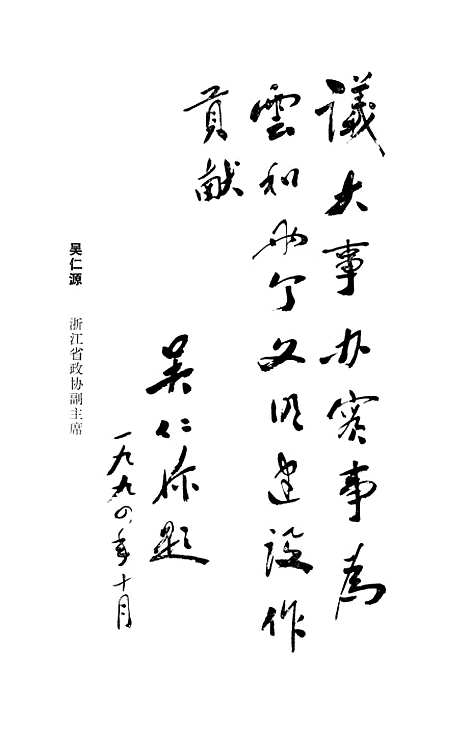 議大事办实事為
雲和两个文明建设作
貢献
吴仁源题
一九九〇年十月
吴仁源 浙江省政协副主席